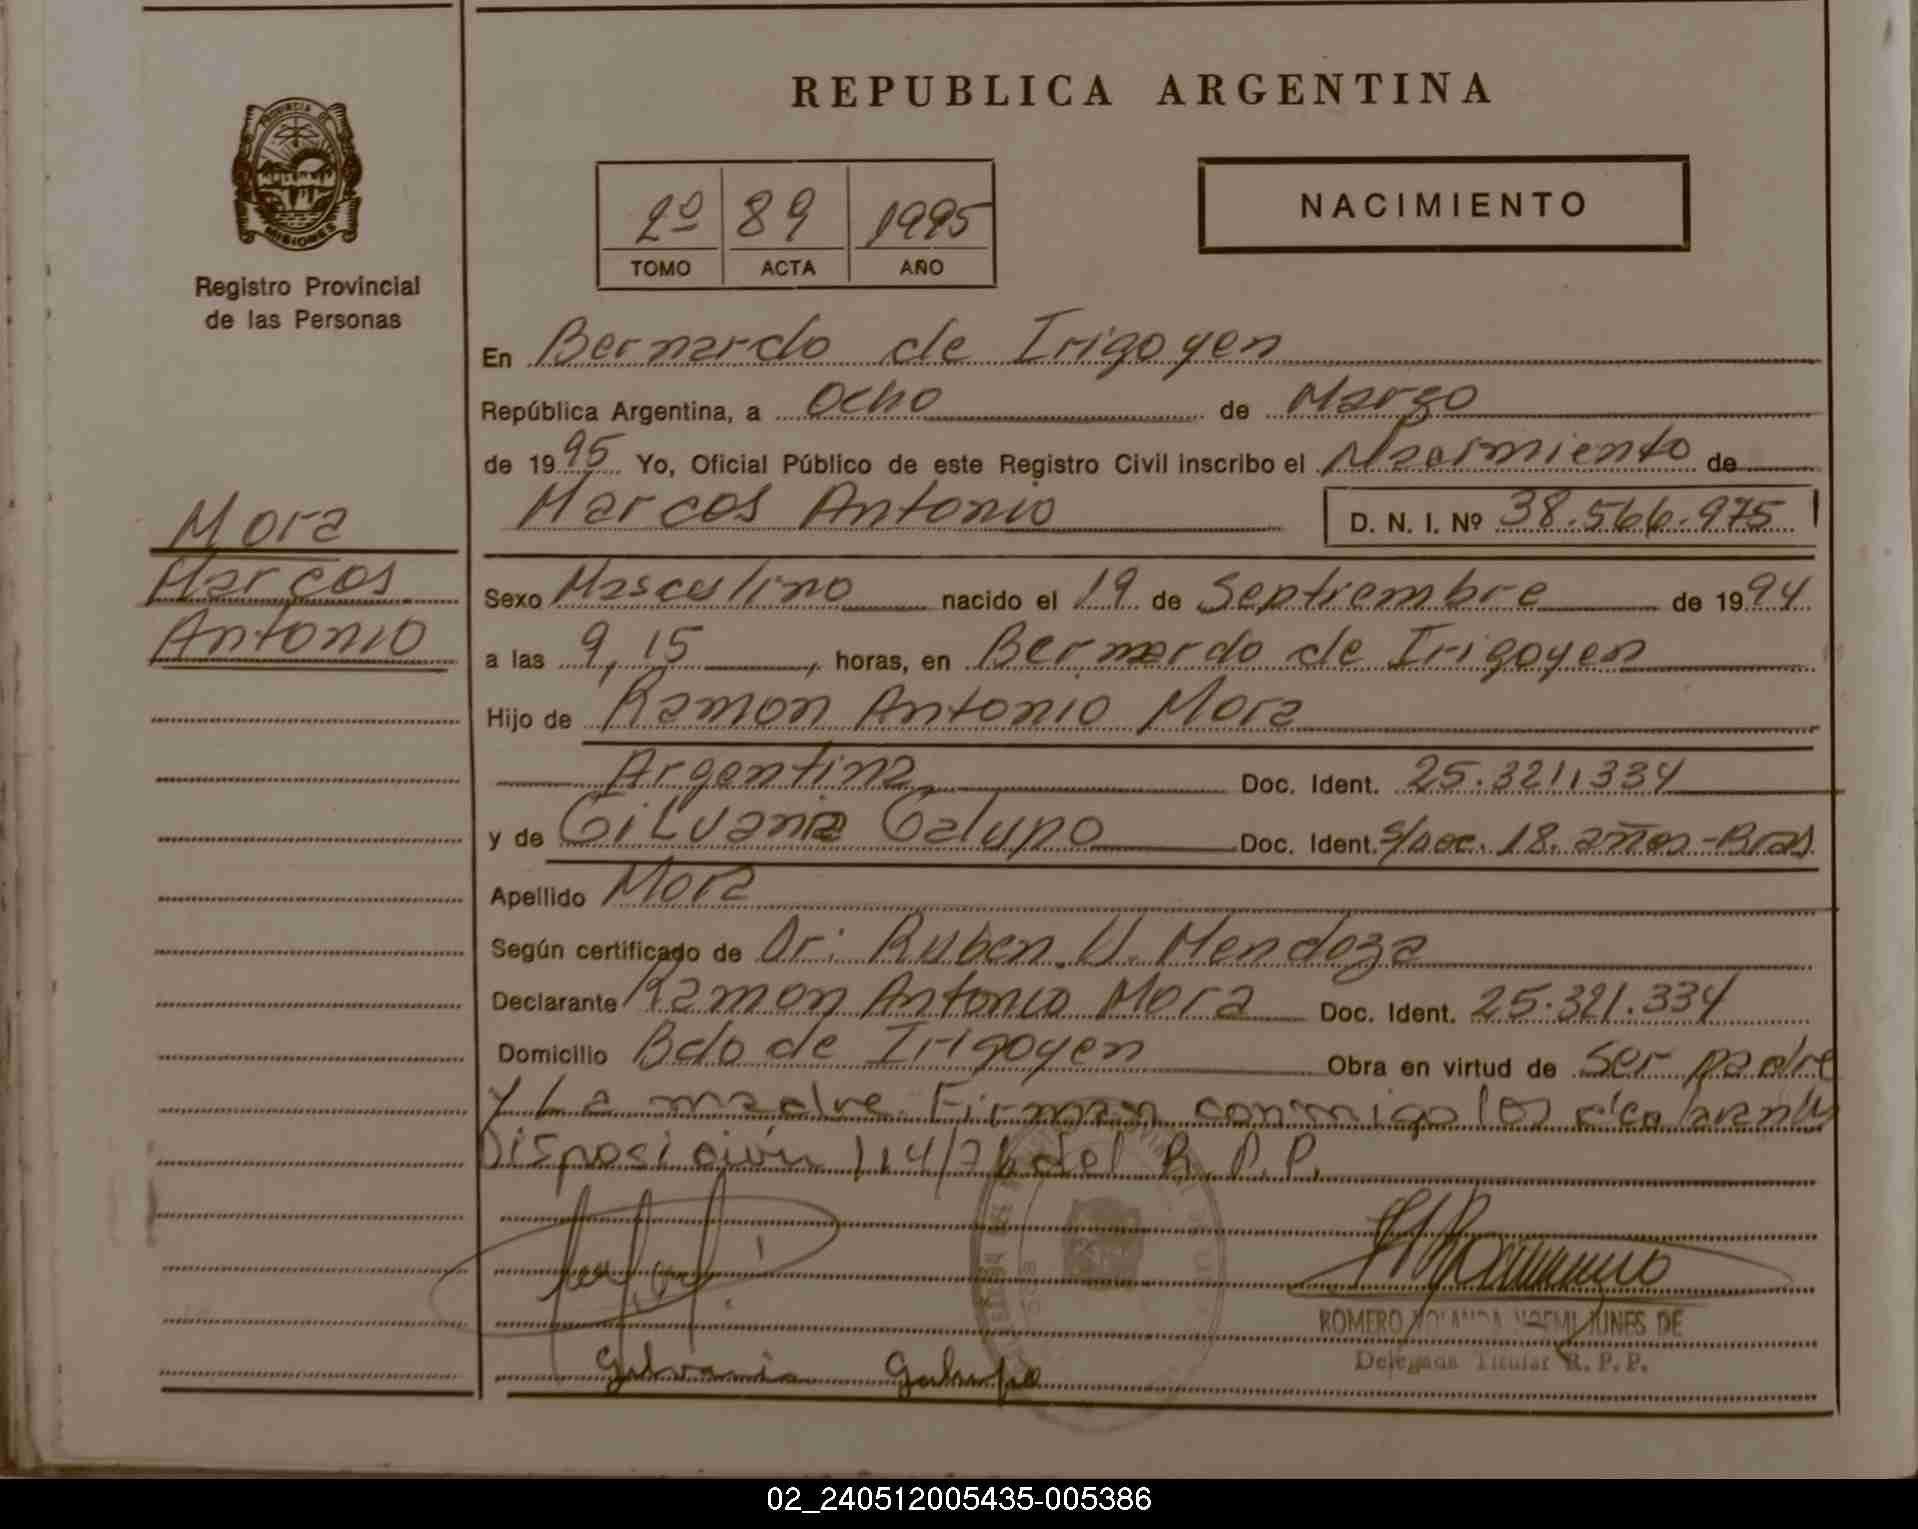 REPUBLICA ARGENTINA
PROVINCIA DE
MISIONES
Registro Provincial
de las Personas
2º 89 1995
TOMO ACTA AÑO
NACIMIENTO
En Bernardo de Irigoyen
República Argentina, a Ocho de Marzo
de 1995 Yo, Oficial Público de este Registro Civil inscribo el Nacimiento de
Marcos Antonio D. N. I. Nº 38.566.975
Mora
Marcos
Antonio
Sexo Masculino nacido el 19 de Septiembre de 1994
a las 9,15, horas, en Bernardo de Irigoyen
Hijo de Ramon Antonio Mora
Argentina Doc. Ident. 25.321.334
y de Gilvania Galupo Doc. Ident. s/Doc. 18. años-Bras
Apellido Mora
Según certificado de Dr: Ruben U. Mendoza
Declarante Ramon Antonio Mora Doc. Ident. 25.321.334
Domicilio Bdo de Irigoyen Obra en virtud de Ser padre
y La madre. Firman conmigo los
Disposición 114/76 del R.P.P.
Gilvania Galupo
ROMERO YOLANDA NOEMI NUNES DE
Delegada Titular R. P. P.
02_240512005435-005386